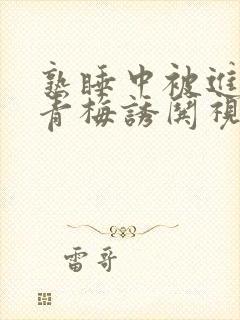 熟睡中被進
青梅誘関視
雷哥